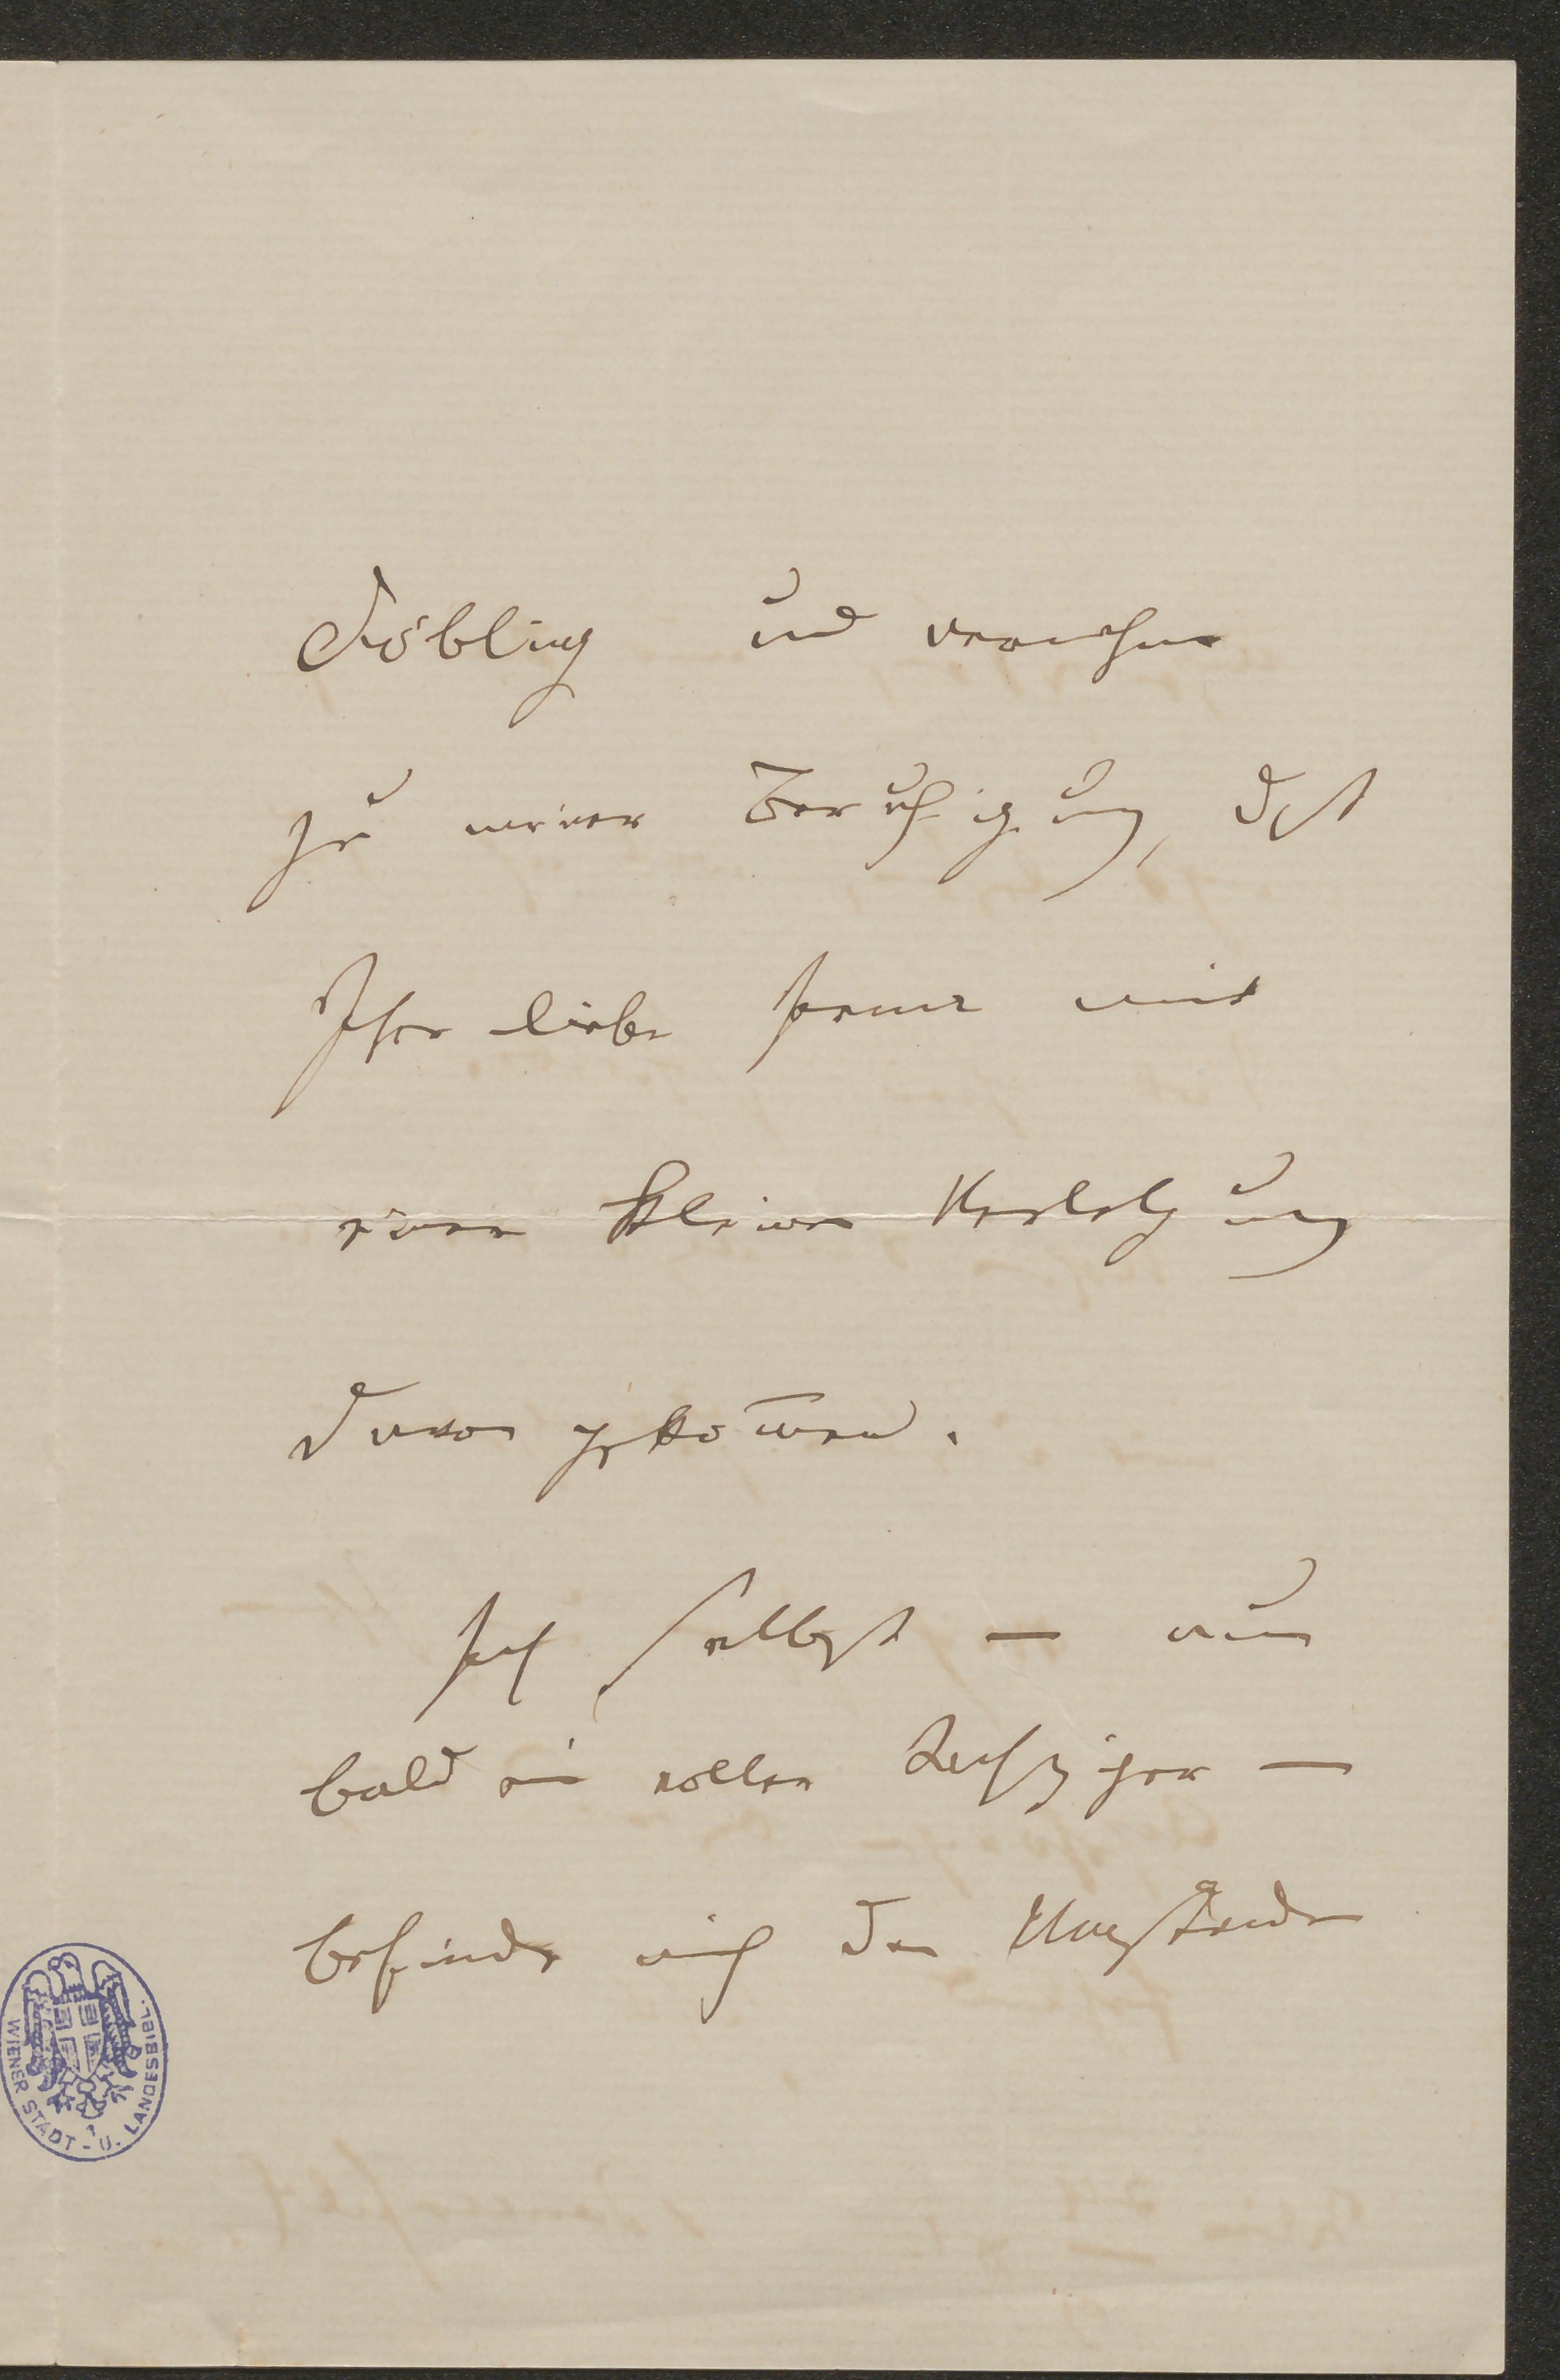 Döbling und vernehme
zu meiner Beruhigung, dß
Ihre liebe Frau mit
einer kleinen Verletzung
davon gekom̅en.
Ich selbst — nun
bald ein voller Sechziger —
befinde mich den Umständen
WIENER STADT - U. LANDESBIBL.